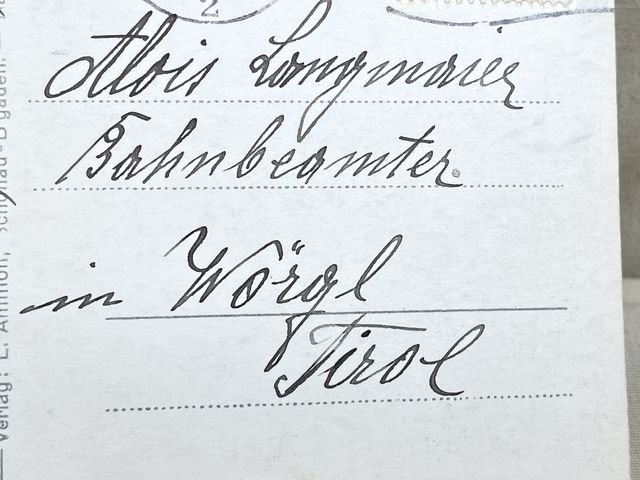 2
Alois Langmaier
Bahnbeamter.
in Wörgl
Tirol
Verlag: L. Ammon, Schönau-B'gaden.